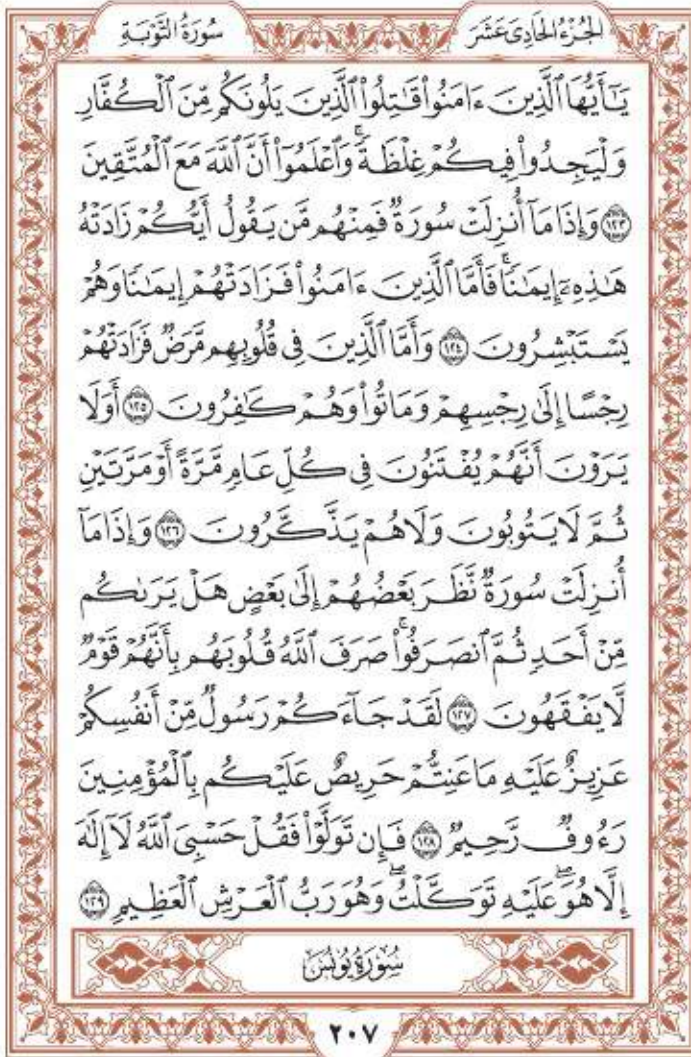 الجُزْءُ الحَادِىَ عَشَرَ
سُورَةُ التَّوْبَةِ
يَٰٓأَيُّهَا ٱلَّذِينَ ءَامَنُوا۟ قَٰتِلُوا۟ ٱلَّذِينَ يَلُونَكُم مِّنَ ٱلْكُفَّارِ
وَلْيَجِدُوا۟ فِيكُمْ غِلْظَةً ۚ وَٱعْلَمُوٓا۟ أَنَّ ٱللَّهَ مَعَ ٱلْمُتَّقِينَ
١٢٣ وَإِذَا مَآ أُنزِلَتْ سُورَةٌ فَمِنْهُم مَّن يَقُولُ أَيُّكُمْ زَادَتْهُ
هَٰذِهِۦٓ إِيمَٰنًا ۚ فَأَمَّا ٱلَّذِينَ ءَامَنُوا۟ فَزَادَتْهُمْ إِيمَٰنًا وَهُمْ
يَسْتَبْشِرُونَ ١٢٤ وَأَمَّا ٱلَّذِينَ فِى قُلُوبِهِم مَّرَضٌ فَزَادَتْهُمْ
رِجْسًا إِلَىٰ رِجْسِهِمْ وَمَاتُوا۟ وَهُمْ كَٰفِرُونَ ١٢٥ أَوَلَا
يَرَوْنَ أَنَّهُمْ يُفْتَنُونَ فِى كُلِّ عَامٍ مَّرَّةً أَوْ مَرَّتَيْنِ
ثُمَّ لَا يَتُوبُونَ وَلَا هُمْ يَذَّكَّرُونَ ١٢٦ وَإِذَا مَآ
أُنزِلَتْ سُورَةٌ نَّظَرَ بَعْضُهُمْ إِلَىٰ بَعْضٍ هَلْ يَرَىٰكُم
مِّنْ أَحَدٍ ثُمَّ ٱنصَرَفُوا۟ ۚ صَرَفَ ٱللَّهُ قُلُوبَهُم بِأَنَّهُمْ قَوْمٌ
لَّا يَفْقَهُونَ ١٢٧ لَقَدْ جَآءَكُمْ رَسُولٌ مِّنْ أَنفُسِكُمْ
عَزِيزٌ عَلَيْهِ مَا عَنِتُّمْ حَرِيصٌ عَلَيْكُم بِٱلْمُؤْمِنِينَ
رَءُوفٌ رَّحِيمٌ ١٢٨ فَإِن تَوَلَّوْا۟ فَقُلْ حَسْبِىَ ٱللَّهُ لَآ إِلَٰهَ
إِلَّا هُوَ ۖ عَلَيْهِ تَوَكَّلْتُ ۖ وَهُوَ رَبُّ ٱلْعَرْشِ ٱلْعَظِيمِ ١٢٩
سُورَةُ يُونُسَ
٢٠٧